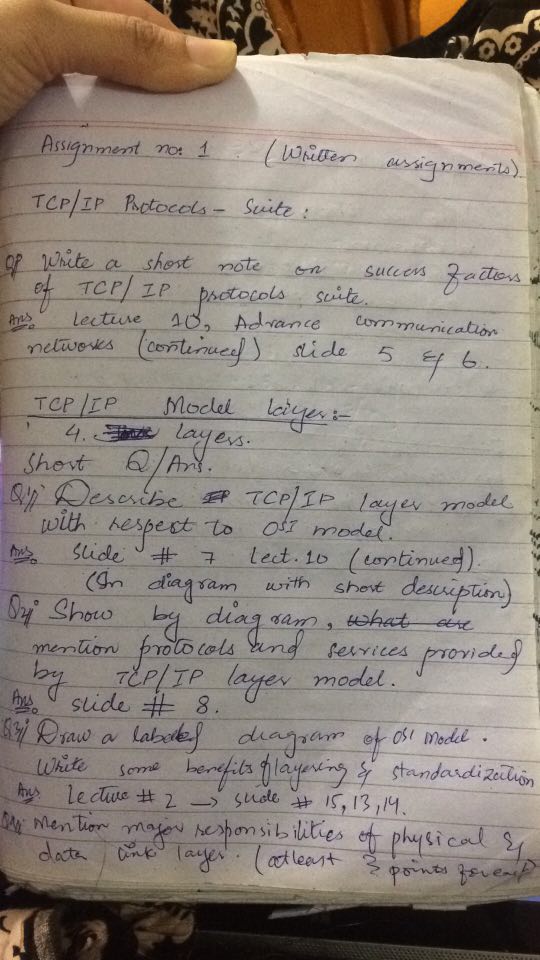 Assignment no: 1. (Written assignments).
TCP/IP Protocols - Suite:
Q# Write a short note on success factors
of TCP/IP protocols suite.
Ans. lecture 10, Advance communication
networks (continued) slide 5 & 6.
TCP/IP Model layer:-
4. layers.
Short Q/Ans.
Q1# Describe TCP/IP layer model
with respect to OSI model.
Ans. slide # 7 lect. 10 (continued).
(In diagram with short desciption)
Q2# Show by diagram, what are
mention protocols and services provided
by TCP/IP layer model.
Ans. slide # 8.
Q3# Draw a labeled diagram of OSI model.
Write some benefits of layering & standardization
Ans lecture # 2 → slide # 15, 13, 14.
Q4# Mention major responsibilities of physical &
data link layer. (atleast 3 points for each)